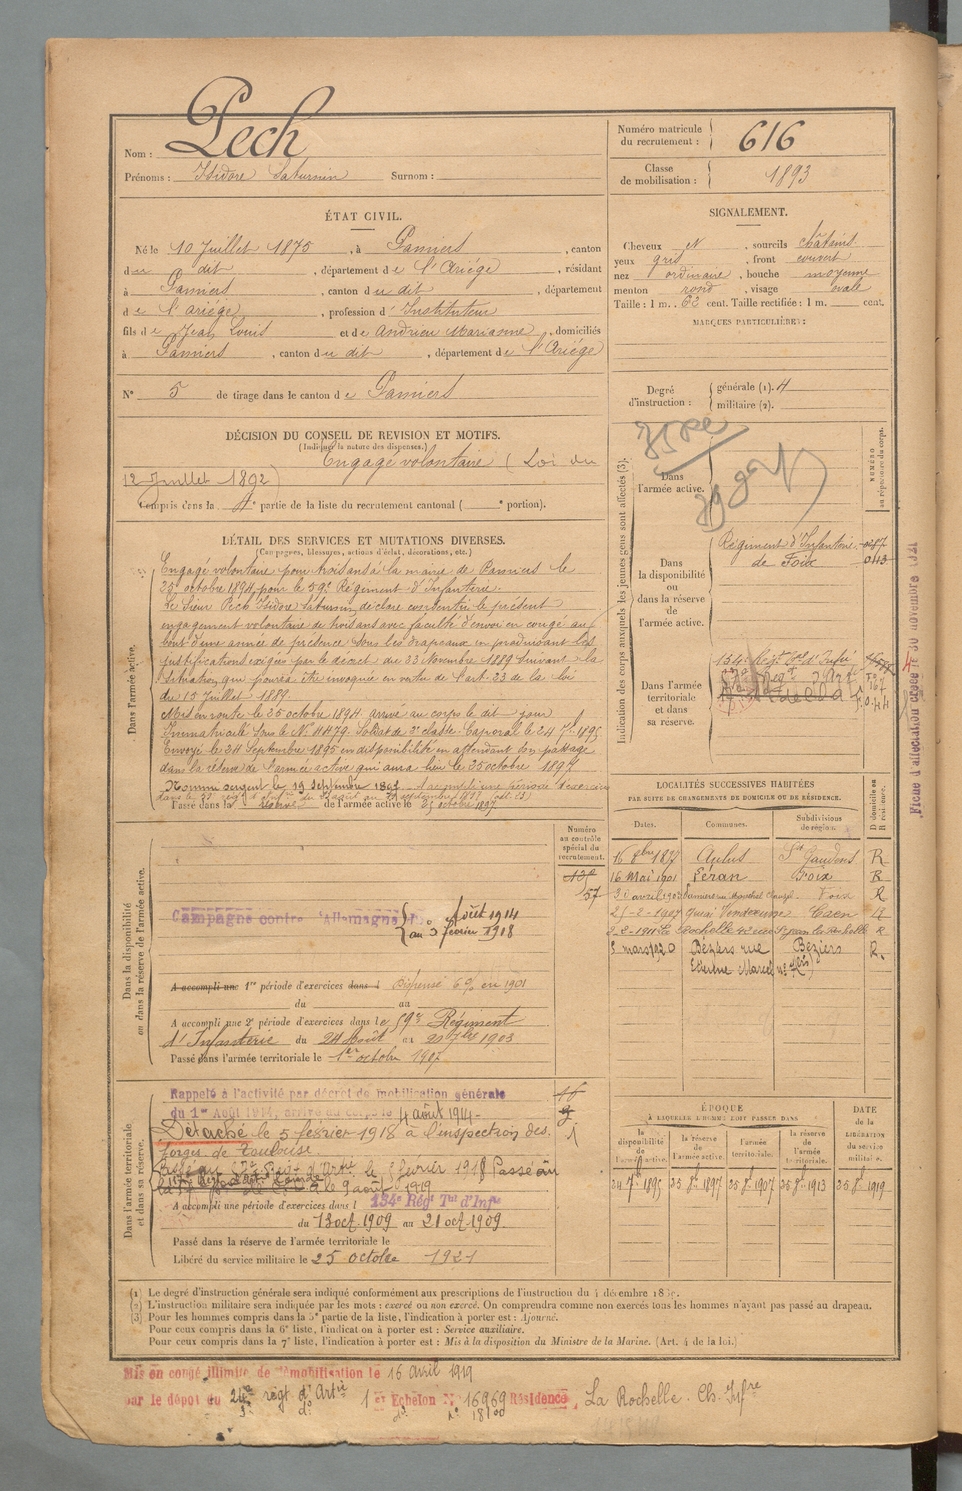 Nom : Pech
Prénoms : Isidore Saturnin Surnom :
Numéro matricule du recrutement : 616
Classe de mobilisation : 1893
ÉTAT CIVIL.
Né le 10 Juillet 1875, à Pamiers, canton
du dit, département de l'Ariége, résidant
à Pamiers, canton du dit, département
de l'ariége, profession d'Instituteur
fils de Jean Louis et de Andrieu Marianne, domiciliés
à Pamiers, canton du dit, département de l'Ariége
N° 5 de tirage dans le canton de Pamiers
SIGNALEMENT.
Cheveux N, sourcils châtains
yeux gris, front couvert
nez ordinaire, bouche moyenne
menton rond, visage ovale
Taille : 1 m. 62 cent. Taille rectifiée : 1 m. cent.
MARQUES PARTICULIÈRES :
Degré d'instruction : générale (1). 4
militaire (2).
DÉCISION DU CONSEIL DE REVISION ET MOTIFS.
(Indiquer la nature des dispenses.)
Engagé volontaire (Loi du
12 Juillet 1892)
Compris dans la partie de la liste du recrutement cantonal ( portion).
DÉTAIL DES SERVICES ET MUTATIONS DIVERSES.
(Campagnes, blessures, actions d'éclat, décorations, etc.)
Dans l'armée active.
Engagé volontaire pour trois ans à la mairie de Pamiers le
25 octobre 1894 pour le 59e Régiment d'Infanterie.
Le Sieur Pech Isidore Saturnin, déclare contracter le présent
engagement volontaire de trois ans avec faculté d'envoi en congé au
bout d'une année de présence sous les drapeaux en produisant les
justifications exigées par le décret du 23 Novembre 1889 suivant la
situation qui pourra être invoquée en vertu de l'art. 23 de la loi
du 15 Juillet 1889.
Mis en route le 25 octobre 1894 arrivé au corps le dit jour
Immatriculé sous le N° 4479. Soldat de 2e classe. Caporal le 24 7bre 1895
Envoyé le 24 Septembre 1895 en disponibilité en attendant son passage
dans la réserve de l'armée active qui aura lieu le 25 octobre 1897
Nommé sergent le 19 septembre 1897.
Passé dans la réserve de l'armée active le 25 octobre 1897
Indication des corps auxquels les jeunes gens sont affectés (3).
NUMÉRO au répertoire du corps.
Dans l'armée active.
Dans la disponibilité ou dans la réserve de l'armée active.
Régiment d'Infanterie
de Foix
Dans l'armée territoriale et dans sa réserve.
134e Régt
Fiche d'allocation
novembre 1921
LOCALITÉS SUCCESSIVES HABITÉES
PAR SUITE DE CHANGEMENTS DE DOMICILE OU DE RÉSIDENCE.
Dates. Communes. Subdivisions de région. D domicile ou R résidence.
16 8bre 1897 Aulus St Gaudens R
16 Mai 1901 Léran Foix R
30 avril 190 Pamiers Foix R
21-2-1907 quai Vendeuvre Caen R
2-2-1911 La Rochelle R
5 mars 1920 Béziers rue Béziers R.
Etienne Marcel
Dans la disponibilité ou dans la réserve de l'armée active.
Numéro au contrôle spécial du recrutement.
57
Campagne contre l'Allemagne du Août 1914
au 5 février 1918
A accompli une 1re période d'exercices dans l Dispensé en 1901
du au
A accompli une 2e période d'exercices dans le 59e Régiment
d'Infanterie du 24 Août au 20 7bre 1903
Passé dans l'armée territoriale le 1er octobre 1907
Dans l'armée territoriale et dans sa réserve.
Rappelé à l'activité par décret de mobilisation générale
du 1er Août 1914, arrivé au corps le 4 août 1914
Détaché le 5 février 1918 à l'inspection des
forges de Toulouse.
Passé au Regt d'Artie le 5 février 1918 Passé au
le 9 août 1919
A accompli une période d'exercices dans l 134e Régt Tal d'Infie
du 13 oct. 1909 au 21 oct. 1909
Passé dans la réserve de l'armée territoriale le
Libéré du service militaire le 25 octobre 1921
ÉPOQUE
À LAQUELLE L'HOMME DOIT PASSER DANS
la disponibilité de l'armée active. la réserve de l'armée active. l'armée territoriale. la réserve de l'armée territoriale.
DATE DE LA LIBÉRATION du service militaire.
24 7bre 1895 25 8bre 1897 25 8bre 1907 25 8bre 1913 25 8bre 1919
(1) Le degré d'instruction générale sera indiqué conformément aux prescriptions de l'instruction du 4 décembre 18
(2) L'instruction militaire sera indiquée par les mots : exercé ou non exercé. On comprendra comme non exercés tous les hommes n'ayant pas passé au drapeau.
(3) Pour les hommes compris dans la 5e partie de la liste, l'indication à porter est : Ajourné.
Pour ceux compris dans la 6e liste, l'indication à porter est : Service auxiliaire.
Pour ceux compris dans la 7e liste, l'indication à porter est : Mis à la disposition du Ministre de la Marine. (Art. 4 de la loi.)
Mis en congé illimité de démobilisation le 16 avril 1919
par le dépôt du 24e régt d'Artie 1er Echelon N° 16969 Résidence La Rochelle. Ch. Infre